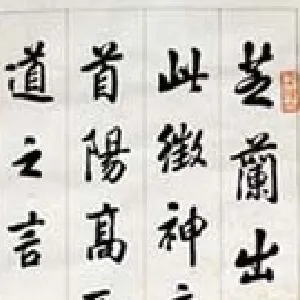 芝蘭出
此徵神
首陽高
道之言